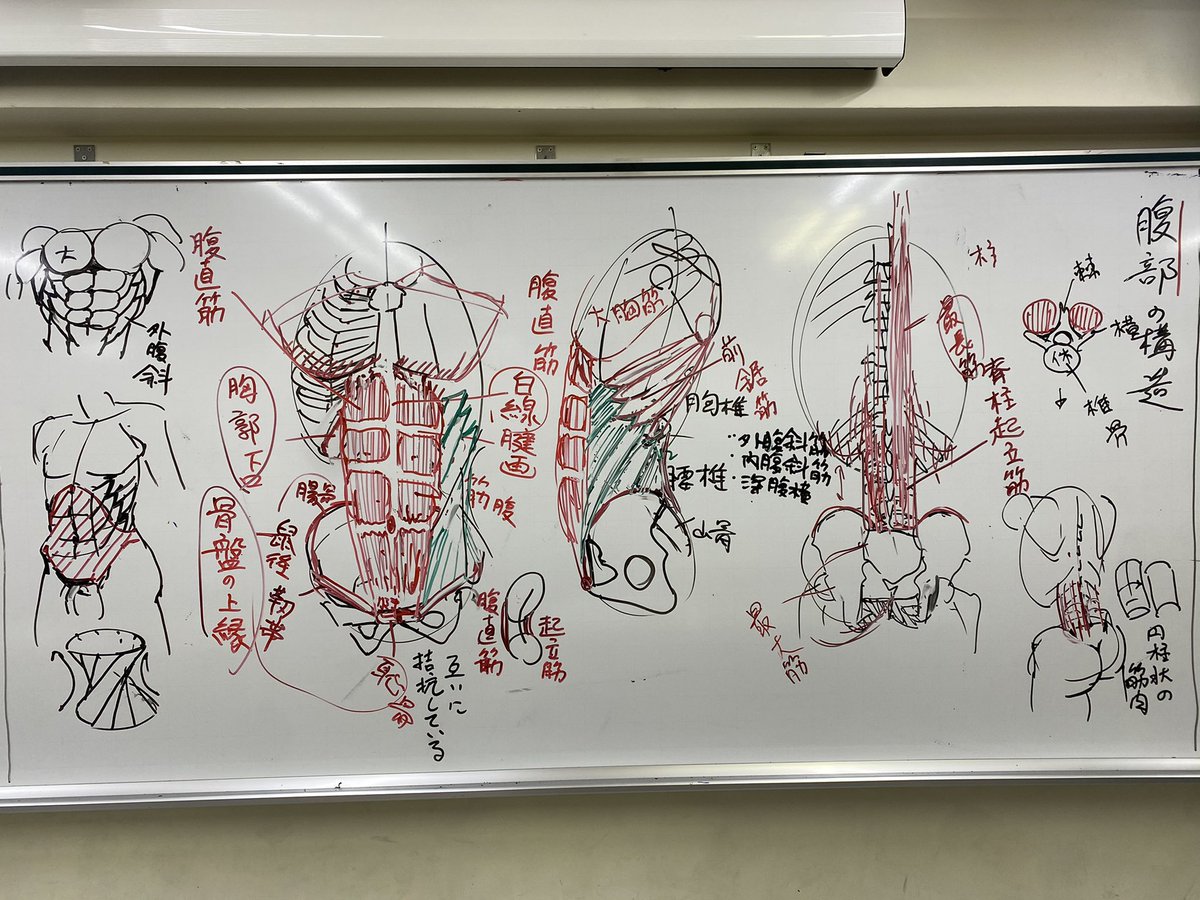 腹部の構造
棘
横
体
椎骨
円柱状の
筋肉
柱
最長筋
脊柱起立筋
最大筋
大胸筋
前鋸筋
胸椎
腰椎
・外腹斜筋
・内腹斜筋
腹直筋
白線
腱画
筋腹
腹直筋
起立筋
互いに
拮抗している
腹直筋
胸郭下口
骨盤の上縁
腸骨
恥骨
大
外腹斜